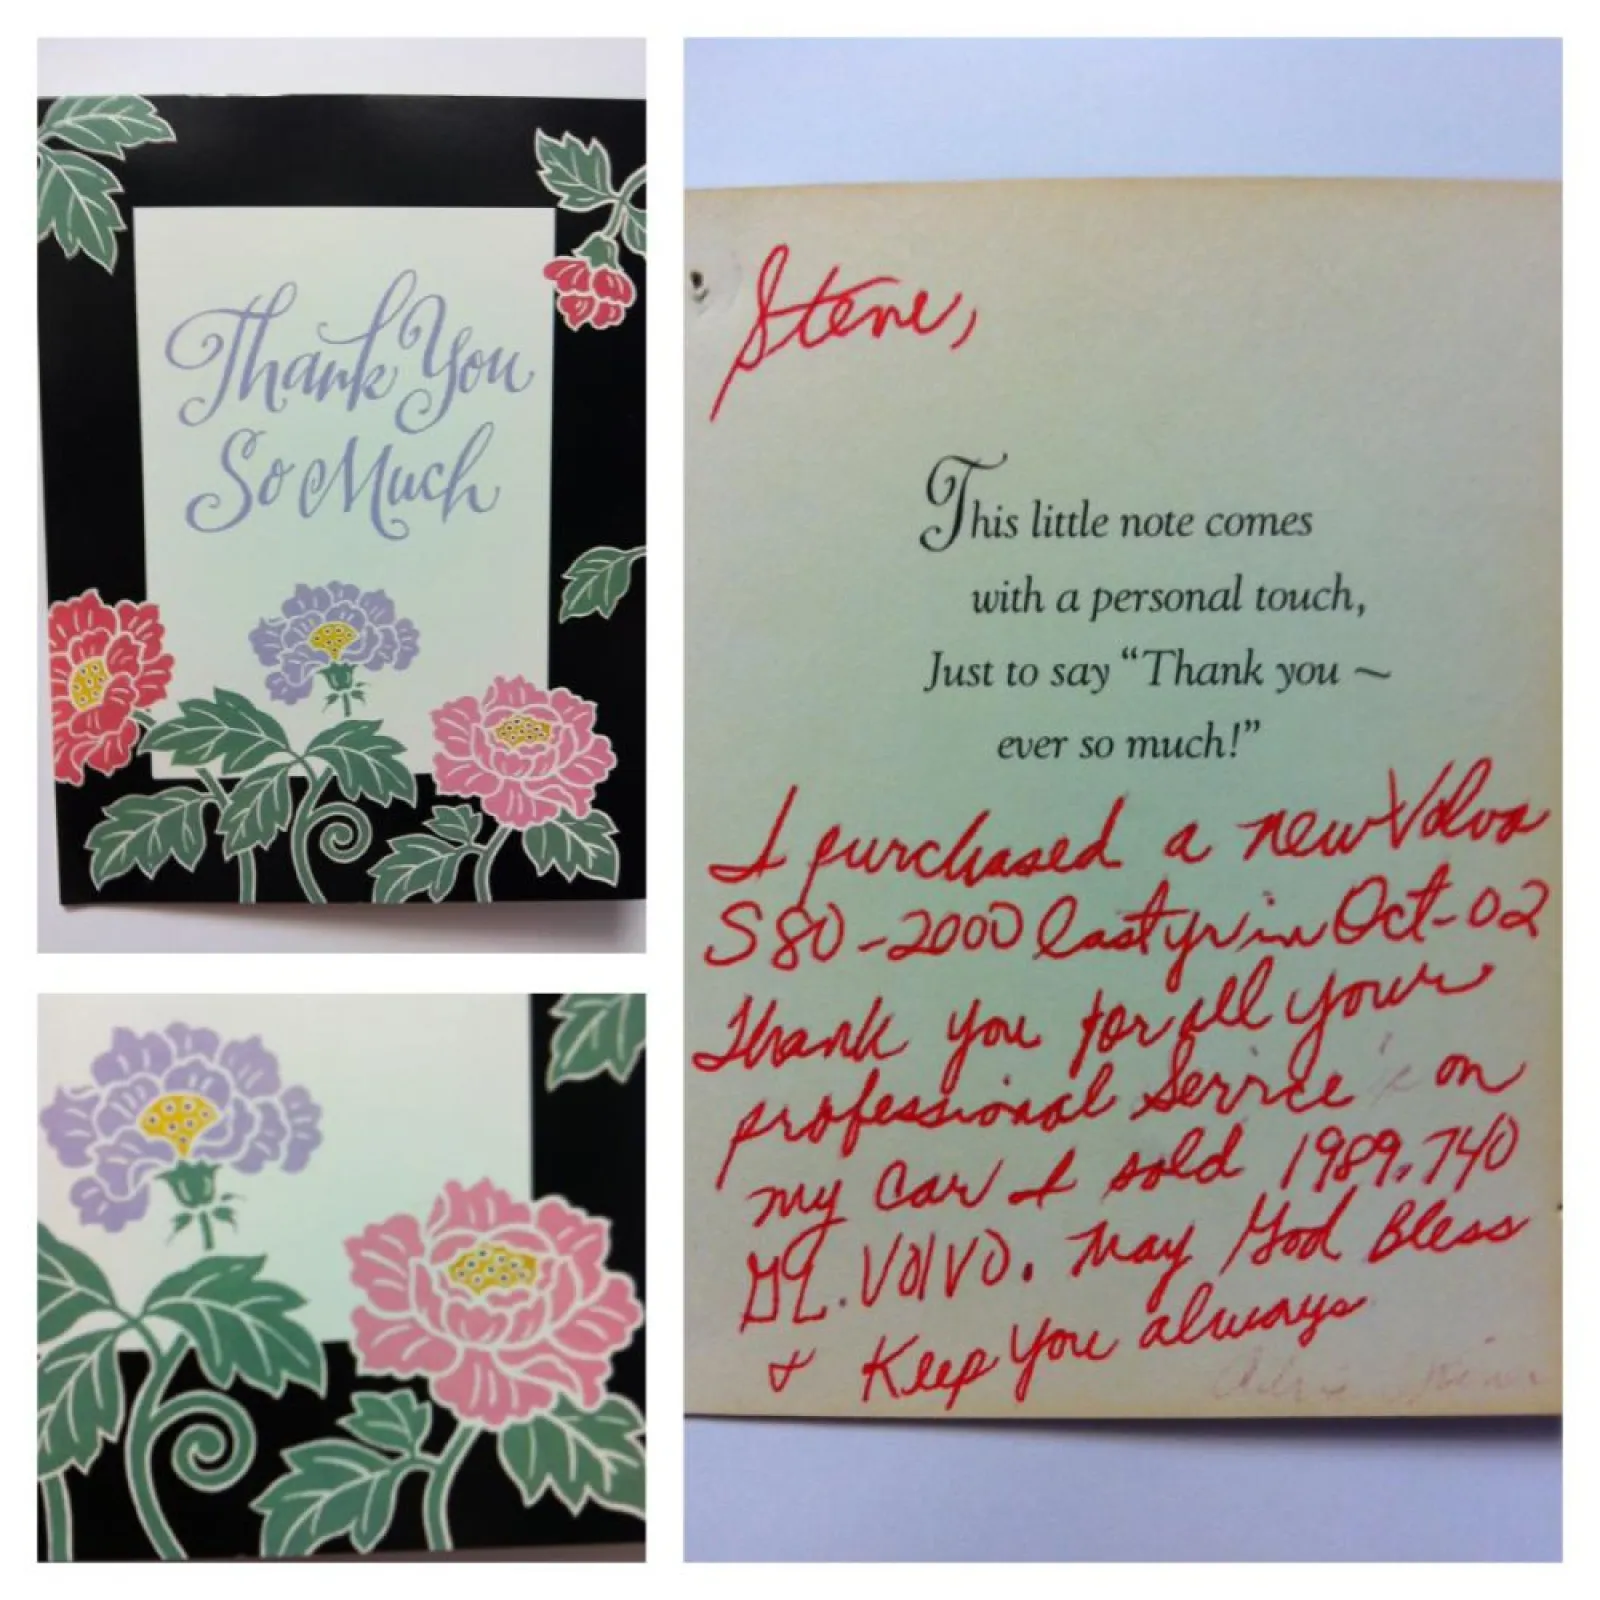 Thank You
So Much
Steve,
This little note comes
with a personal touch,
Just to say “Thank you ~
ever so much!”
I purchased a new Volvo
S80-2000 last yr in Oct-02
Thank you for all your
professional Service on
my car I sold 1989, 740
GL. VOLVO. May God Bless
& Keep you always